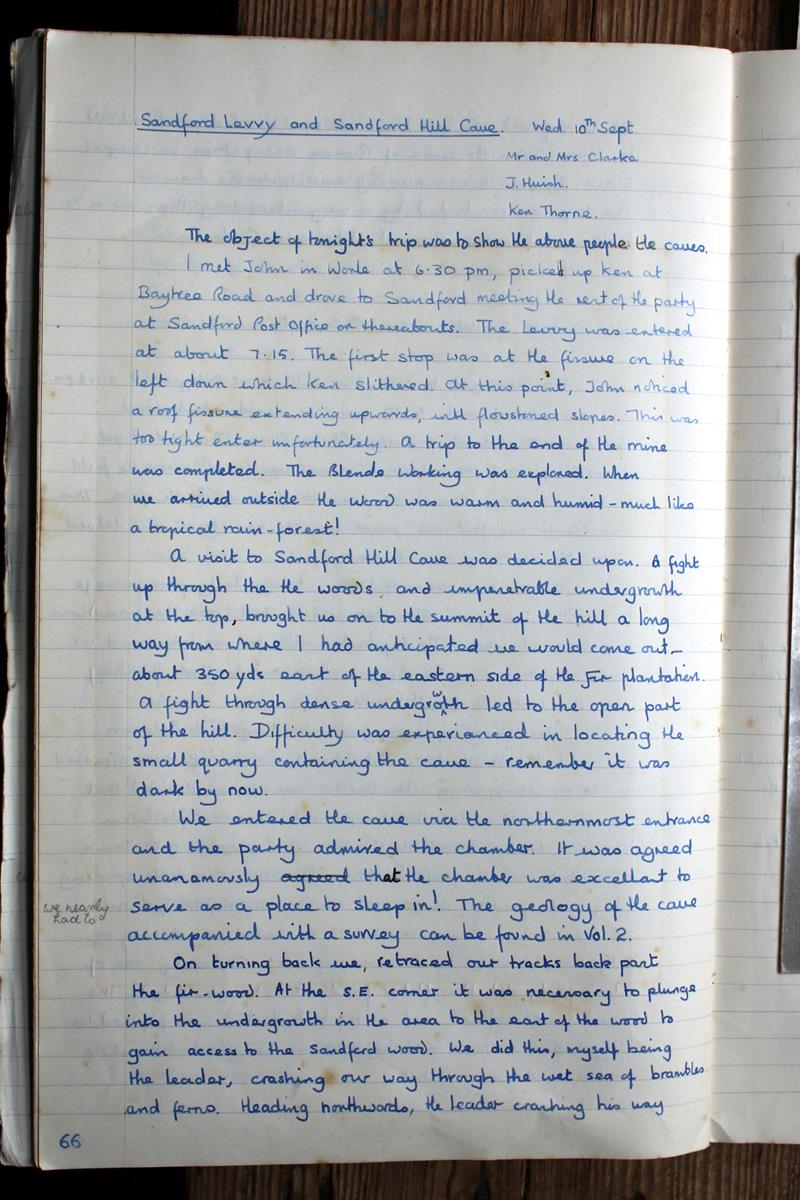 Sandford Levvy and Sandford Hill Cave. Wed. 10th Sept.
Mr and Mrs Clarke
J. Huish.
Ken Thorne.
The object of tonight's trip was to show the above people the caves.
I met John in Worle at 6.30 pm, picked up Ken at
Baytree Road and drove to Sandford meeting the rest of the party
at Sandford Post Office or thereabouts. The Levvy was entered
at about 7.15. The first stop was at the fissure on the
left down which Ken slithered. At this point, John noticed
a roof fissure extending upwards, with flowstoned slopes. This was
too tight enter unfortunately. A trip to the end of the mine
was completed. The Blende Working was explored. When
we arrived outside the wood was warm and humid - much like
a tropical rain-forest!
A visit to Sandford Hill Cave was decided upon. A fight
up through the the woods, and impenetrable undergrowth
at the top, brought us on to the summit of the hill a long
way from where I had anticipated we would come out -
about 350 yds east of the eastern side of the Fir plantation.
A fight through dense undergrowth led to the open part
of the hill. Difficulty was experienced in locating the
small quarry containing the cave - remember it was
dark by now.
We entered the cave via the northernmost entrance
and the party admired the chamber. It was agreed
unanamously agreed that the chamber was excellant to
we nearly had to
serve as a place to sleep in!. The geology of the cave
accompanied with a survey can be found in Vol. 2.
On turning back we, retraced our tracks back part
the fir-wood. At the S.E. corner it was necessary to plunge
into the undergrowth in the area to the east of the wood to
gain access to the Sandford wood. We did this, myself being
the leader, crashing our way through the wet sea of brambles
and ferns. Heading northwards, the leader crashing his way
66